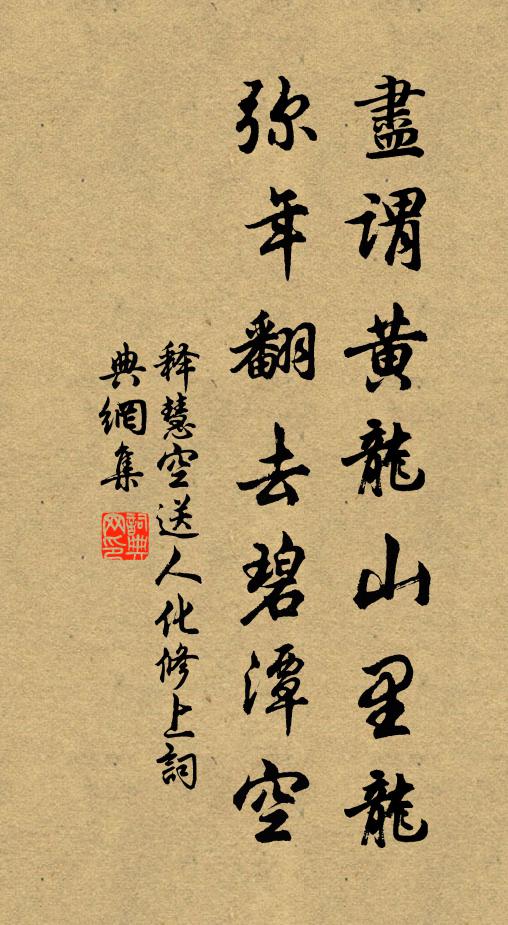 盡謂黃龍山里龍
弥年翻去碧潭空
释慧空送人化修上詞
典網集
詞典网印